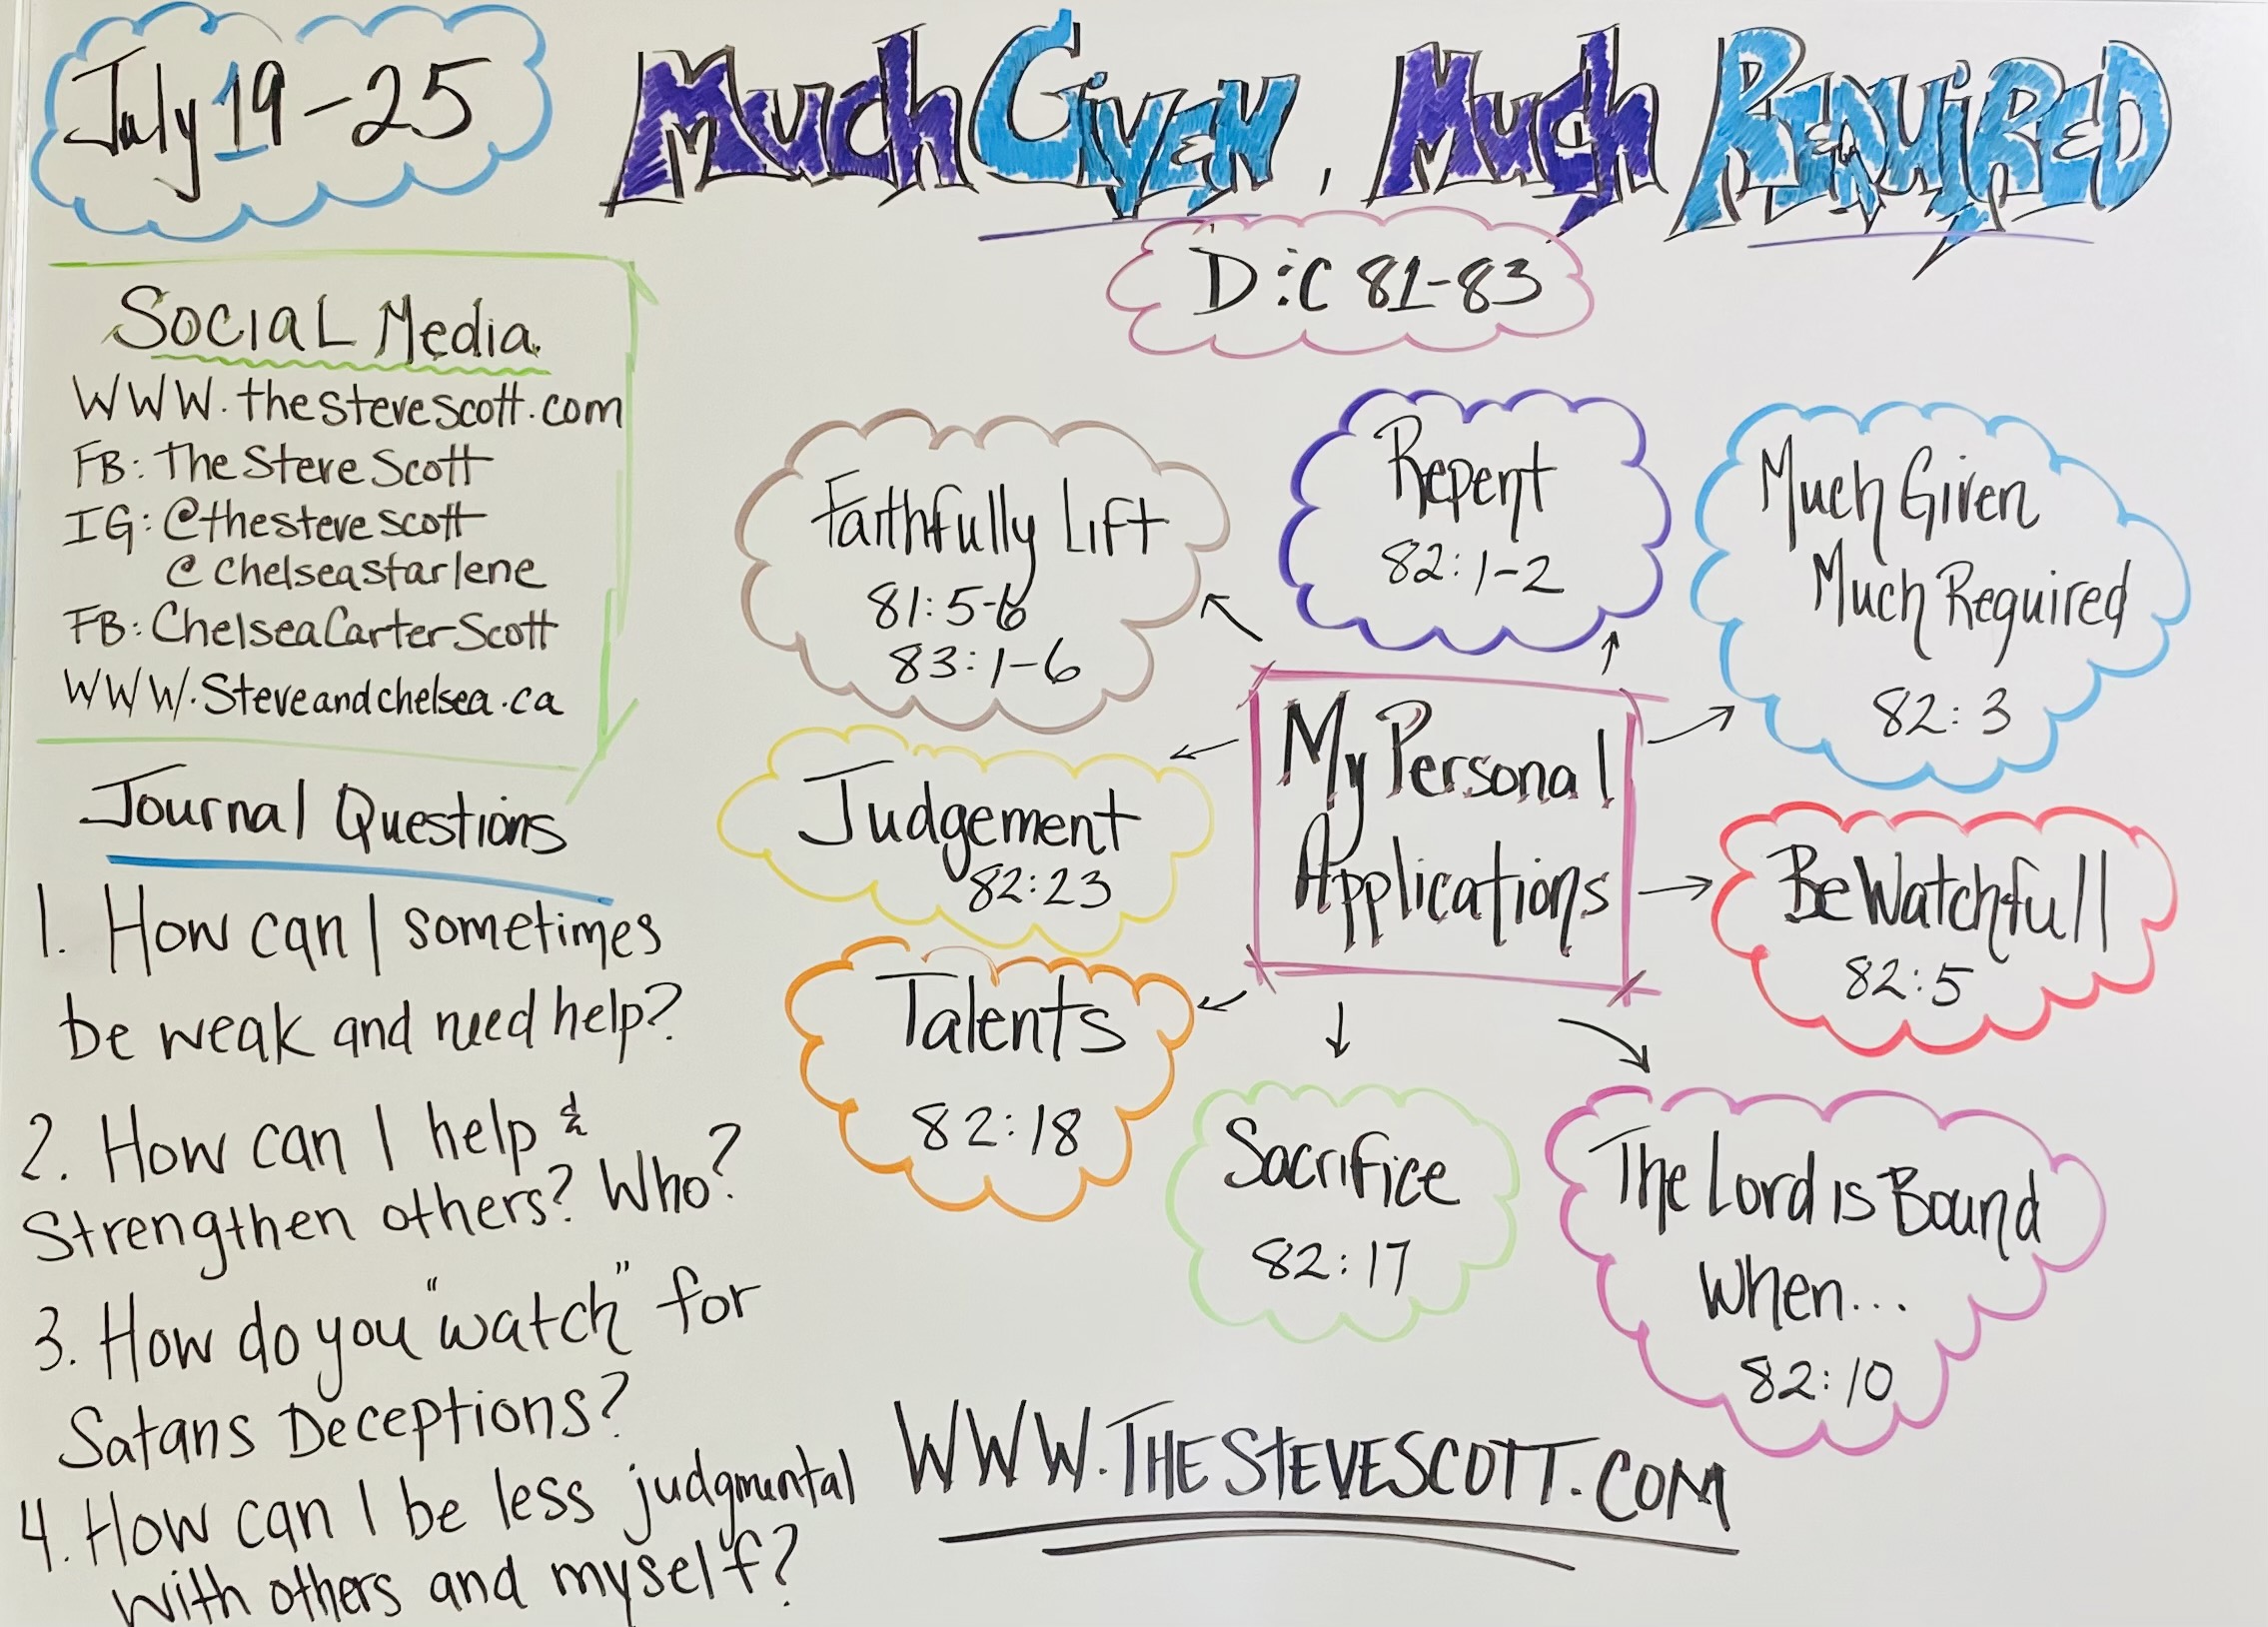 July 19-25
Much Given, Much Required
D:C 81-83
Social Media
WWW.thestevescott.com
FB: The Steve Scott
IG: @thestevescott
@chelseastarlene
FB: ChelseaCarterScott
WWW.Steveandchelsea.ca
Journal Questions
1. How can I sometimes
be weak and need help?
2. How can I help &
Strengthen others? Who?
3. How do you "watch" for
Satans Deceptions?
4. How can I be less judgmental
with others and myself?
Faithfully Lift
81:5-6
83:1-6
Repent
82:1-2
Much Given
Much Required
82:3
Judgement
82:23
My Personal
Applications
Be Watchfull
82:5
Talents
82:18
Sacrifice
82:17
The Lord is Bound
When...
82:10
WWW.THESTEVESCOTT.COM